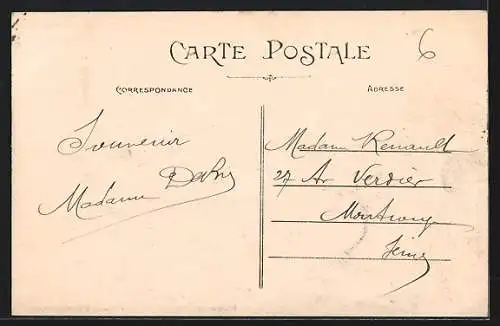 CARTE POSTALE
6
CORRESPONDANCE
ADRESSE
Souvenir
Madame
Madame Renault
27 Av Verdier
Montrouge
Seine